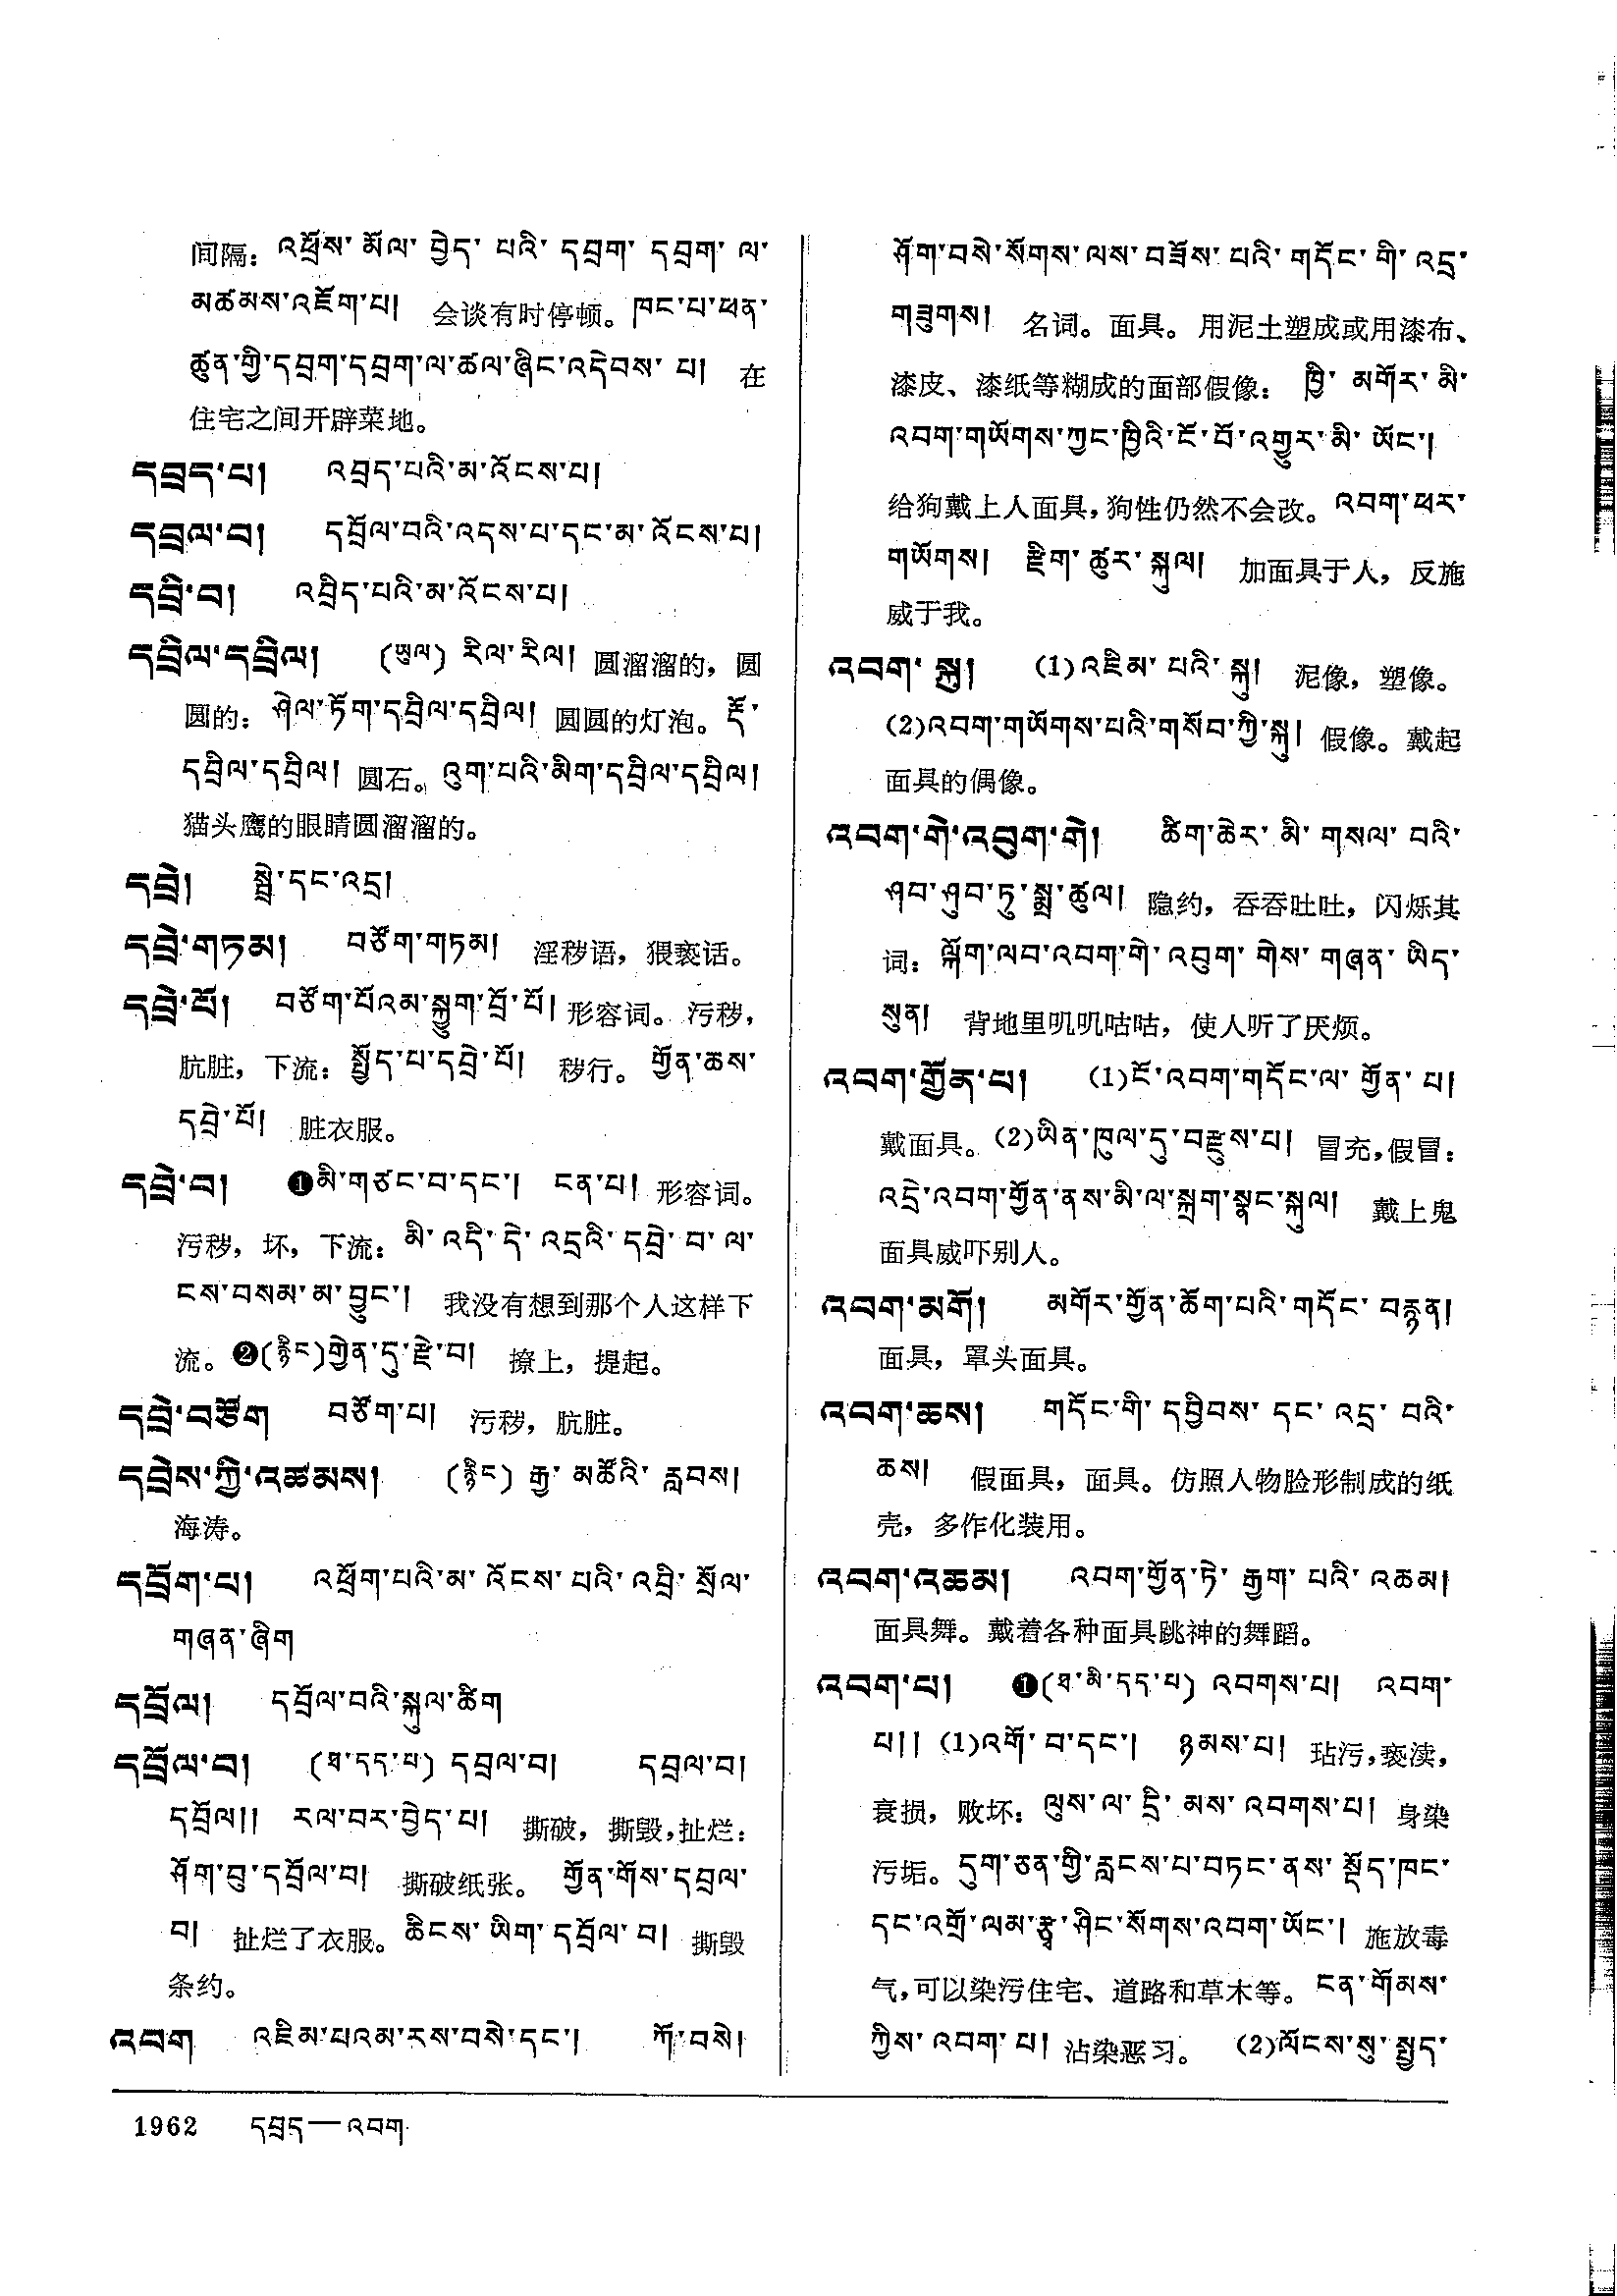 间隔：འཕྲོས་ མོལ་ བྱེད་ པའི་ དབྲག་ དབྲག་ ལ་
མཚམས་འཇོག་པ། 会谈有时停顿。ཁང་པ་ཕན་
ཚུན་གྱི་དབྲག་དབྲག་ལ་ཚལ་ཞིང་འདེབས་ པ། 在
住宅之间开辟菜地。
དབྲད་པ། འབྲད་པའི་མ་འོངས་པ།
དབྲལ་བ། དབྲོལ་བའི་འདས་པ་དང་མ་འོངས་པ།
དབྲི་བ། འབྲིད་པའི་མ་འོངས་པ།
དབྲིལ་དབྲིལ། (ཡུལ) རིལ་རིལ། 圆溜溜的，圆
圆的：ཤེལ་ཏོག་དབྲིལ་དབྲིལ། 圆圆的灯泡。རྡོ་
དབྲིལ་དབྲིལ། 圆石。འུག་པའི་མིག་དབྲིལ་དབྲིལ།
猫头鹰的眼睛圆溜溜的。
དབྲེ། སྦྲེ་དང་འདྲ།
དབྲེ་གཏམ། བཙོག་གཏམ། 淫秽语，猥亵话。
དབྲེ་པོ། བཙོག་པོའམ་སྐྱུག་བྲོ་པོ། 形容词。污秽，
肮脏，下流：སྤྱོད་པ་དབྲེ་པོ། 秽行。གྱོན་ཆས་
དབྲེ་པོ། 脏衣服。
དབྲེ་བ། ❶མི་གཙང་བ་དང་། ངན་པ། 形容词。
污秽，坏，下流：མི་ འདི་ དེ་ འདྲའི་ དབྲེ་ བ་ ལ་
ངས་བསམ་མ་བྱུང་། 我没有想到那个人这样下
流。❷(རྙིང)གྱེན་དུ་རྫེ་བ། 撩上，提起。
དབྲེ་བཙོག བཙོག་པ། 污秽，肮脏。
དབྲེས་ཀྱི་འཚམས། (རྙིང) རྒྱ་ མཚོའི་ རླབས།
海涛。
དབྲོག་པ། འཕྲོག་པའི་མ་ འོངས་ པའི་ འབྲི་ སྲོལ་
གཞན་ཞིག
དབྲོལ། དབྲོལ་བའི་སྐུལ་ཚིག
དབྲོལ་བ། (ཐ་དད་པ) དབྲལ་བ། དབྲལ་བ།
དབྲོལ།། རལ་བར་བྱེད་པ། 撕破，撕毁，扯烂：
ཤོག་བུ་དབྲོལ་བ། 撕破纸张。གྱོན་གོས་དབྲལ་
བ། 扯烂了衣服。ཆིངས་ ཡིག་ དབྲོལ་ བ། 撕毁
条约。
འབག འཇིམ་པའམ་རས་བསེ་དང་། ཀོ་བསེ།
ཤོག་བསེ་སོགས་ལས་བཟོས་ པའི་ གདོང་ གི་ འདྲ་
གཟུགས། 名词。面具。用泥土塑成或用漆布、
漆皮、漆纸等糊成的面部假像：ཁྱི་ མགོར་ མི་
འབག་གཡོགས་ཀྱང་ཁྱིའི་ངོ་བོ་འགྱུར་མི་ ཡོང་།
给狗戴上人面具，狗性仍然不会改。འབག་ཕར་
གཡོགས། རྫིག་ ཚུར་ སྐུལ། 加面具于人，反施
威于我。
འབག་ སྐུ། (1)འཇིམ་ པའི་ སྐུ། 泥像，塑像。
(2)འབག་གཡོགས་པའི་གསོབ་ཀྱི་སྐུ། 假像。戴起
面具的偶像。
འབག་གེ་འབུག་གེ། ཚིག་ཆེར་ མི་ གསལ་ བའི་
ཤབ་ཤུབ་ཏུ་སྨྲ་ཚུལ། 隐约，吞吞吐吐，闪烁其
词：ལྐོག་ལབ་འབག་གེ་ འབུག་ གེས་ གཞན་ ཡིད་
སུན། 背地里叽叽咕咕，使人听了厌烦。
འབག་གྱོན་པ། (1)ངོ་འབག་གདོང་ལ་ གྱོན་ པ།
戴面具。(2)ཡིན་ཁུལ་དུ་བརྫུས་པ། 冒充，假冒：
འདྲེ་འབག་གྱོན་ནས་མི་ལ་སྐྲག་སྣང་སྐུལ། 戴上鬼
面具威吓别人。
འབག་མགོ། མགོར་གྱོན་ཆོག་པའི་གདོང་ བརྙན།
面具，罩头面具。
འབག་ཆས། གདོང་གི་ དབྱིབས་ དང་ འདྲ་ བའི་
ཆས། 假面具，面具。仿照人物脸形制成的纸
壳，多作化装用。
འབག་འཆམ། འབག་གྱོན་ཏེ་ རྒྱག་ པའི་ འཆམ།
面具舞。戴着各种面具跳神的舞蹈。
འབག་པ། ❶(ཐ་མི་དད་པ) འབགས་པ། འབག་
པ།། (1)འགོ་ བ་དང་། ཉམས་པ། 玷污，亵渎，
衰损，败坏：ལུས་ལ་ དྲི་ མས་ འབགས་པ། 身染
污垢。དུག་ཅན་གྱི་རླངས་པ་བཏང་ནས་ སྡོད་ཁང་
དང་འགྲོ་ལམ་རྩྭ་ཤིང་སོགས་འབག་ཡོང་། 施放毒
气，可以染污住宅、道路和草木等。ངན་གོམས་
ཀྱིས་ འབག་ པ། 沾染恶习。 (2)ལོངས་སུ་སྤྱད་
1962 དབྲད—འབག